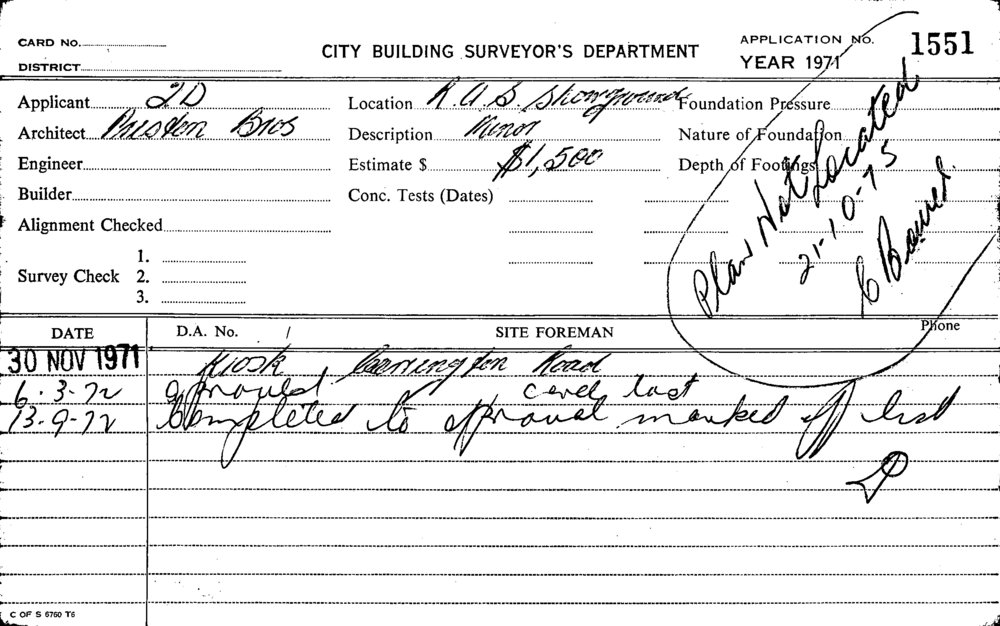 CARD NO. CITY BUILDING SURVEYOR'S DEPARTMENT APPLICATION NO. 1551
DISTRICT YEAR 1971
Applicant 2D Location R.A.S. Showground Foundation Pressure
Architect Preston Bros Description Minor Nature of Foundation
Engineer Estimate $ $1,500 Depth of Footings
Builder Conc. Tests (Dates)
Alignment Checked
1.
Survey Check 2.
3.
Plan Not Located
21-10-75
DATE D.A. No. / SITE FOREMAN Phone
30 NOV 1971 Kiosk Carrington Road
6.3.72 approved card lost
13-9-72 Completed to approval marked off list
C OF S 6760 T6